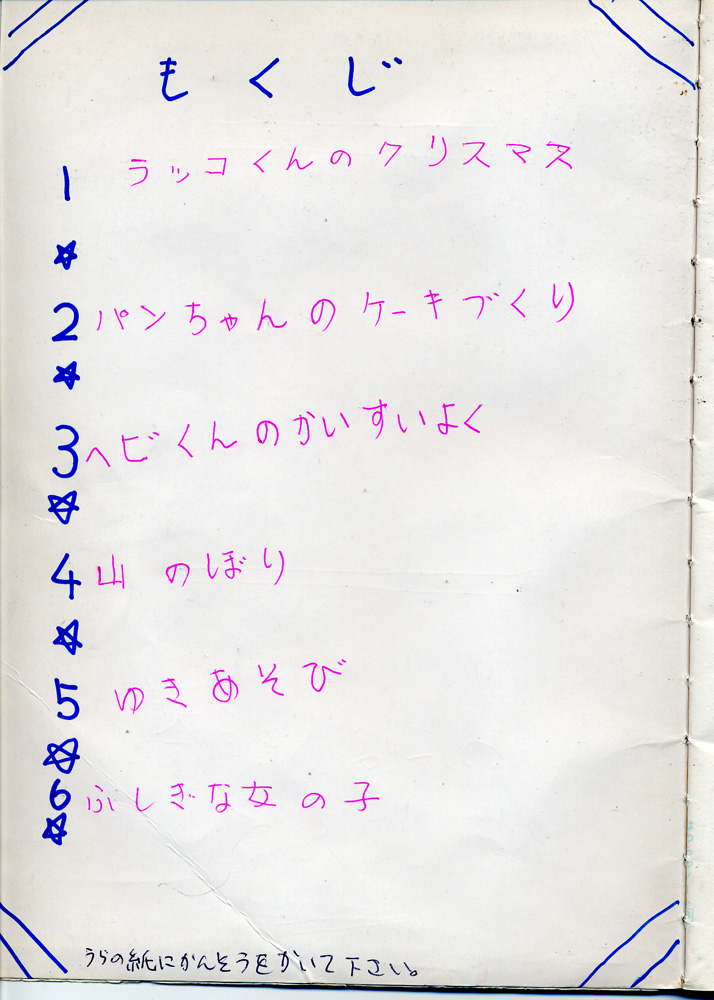 もくじ
1 ラッコくんのクリスマス
2 パンちゃんのケーキづくり
3 ヘビくんのかいすいよく
4 山のぼり
5 ゆきあそび
6 ふしぎな女の子
うらの紙にかんそうをかいて下さい。